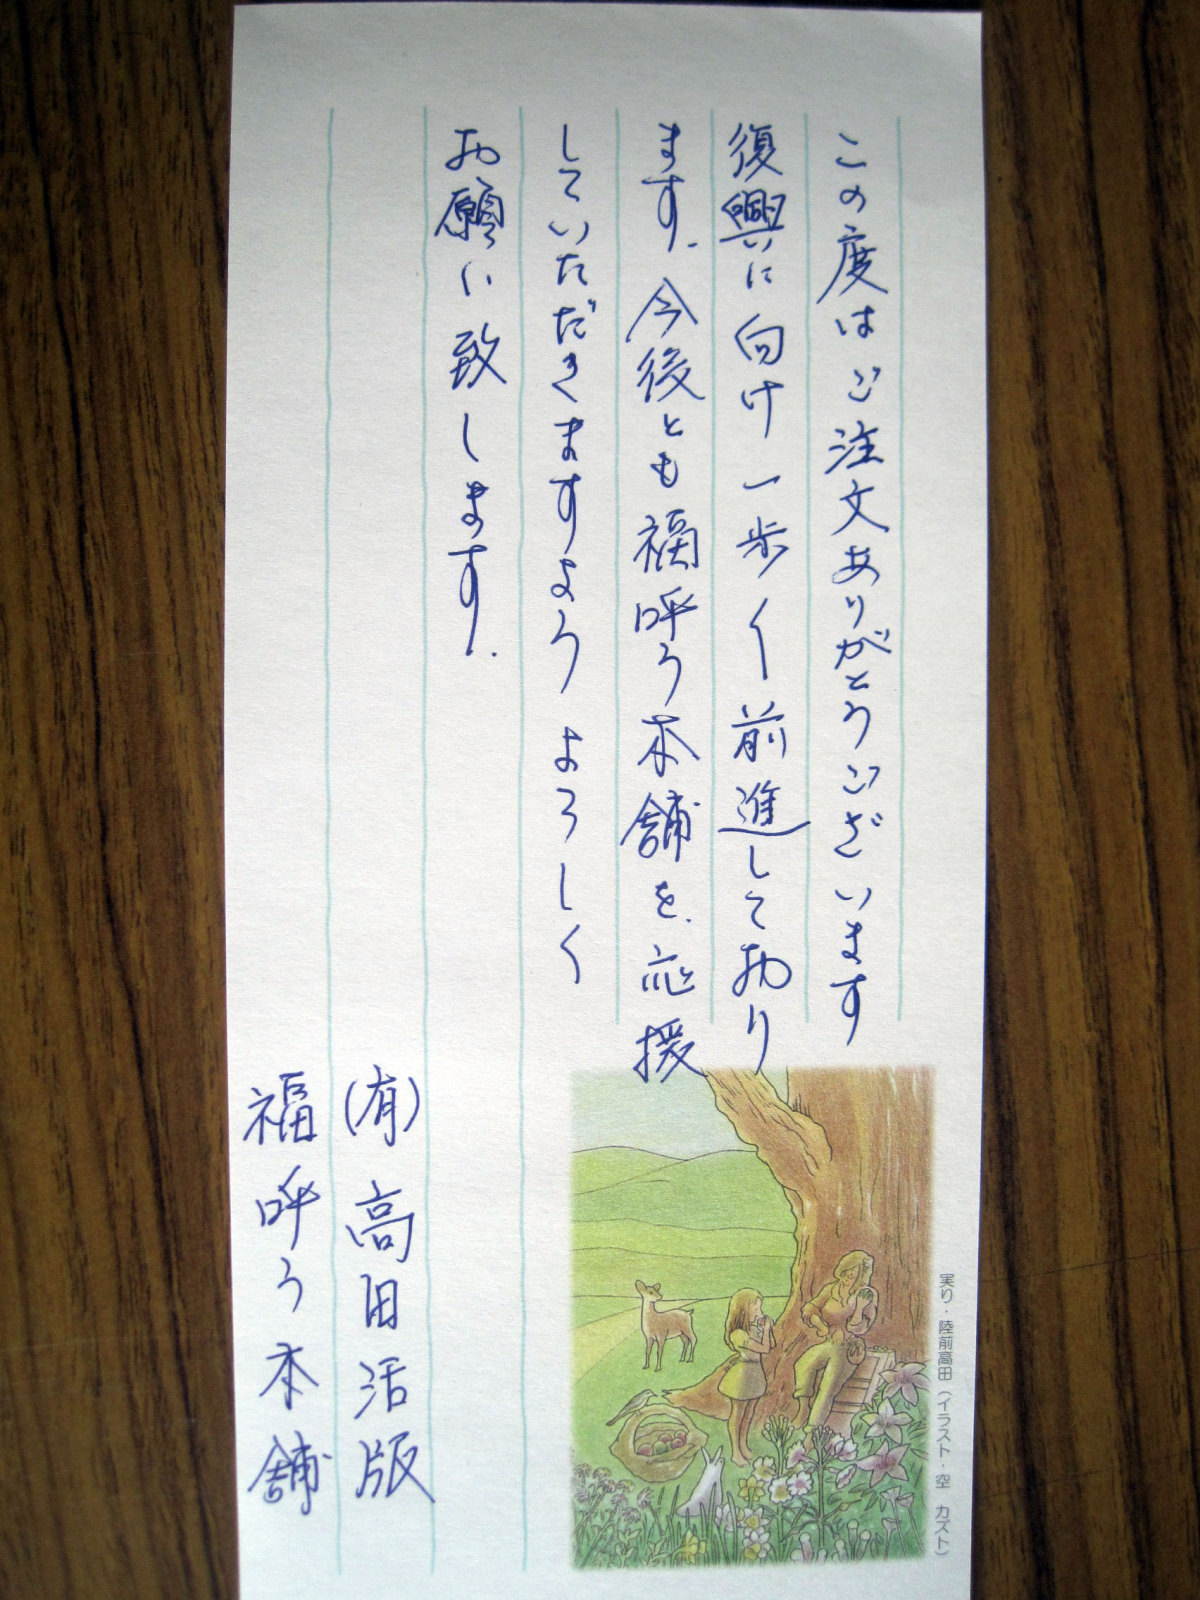 この度はご注文ありがとうございます
復興に向け一歩一歩前進しており
ます.今後とも福呼う本舗を.応援
していただきますよう よろしく
お願い致します.
(有)高田活版
福呼う本舗
実り・陸前高田(イラスト・空 カズト)